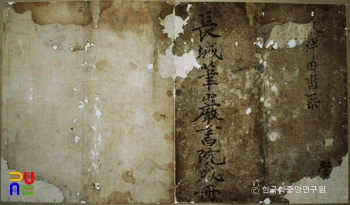 婢田畓案
長城筆巖書院成冊
© 한국학중앙연구원